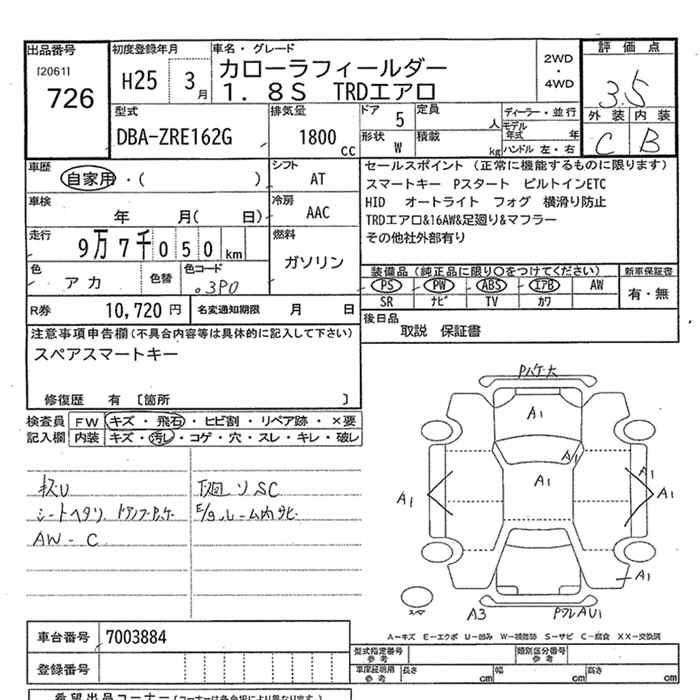 出品番号
(20611
726
初度登録年月
H25 3月
車名・グレード
カローラフィールダー
1.8S TRDエアロ
2WD
・
4WD
評価点
3.5
外装 内装
C B
型式
DBA-ZRE162G
排気量
1800 cc
ドア 5
定員 人
形状 W
積載 kg
ディーラー・並行
モデル年式 年
ハンドル 左・右
車歴
自家用・( )
シフト
AT
車検
年 月( 日)
冷房
AAC
走行
9万7千050km
燃料
ガソリン
色
アカ
色替
色コード
3P0
R券 10,720円
名変通知期限 月 日
セールスポイント(正常に機能するものに限ります)
スマートキー Pスタート ビルトインETC
HID オートライト フォグ 横滑り防止
TRDエアロ&16AW&足廻り&マフラー
その他社外部有り
装備品(純正品に限り○をつけてください)
新車保証書
PS PW ABS エアB AW
SR ナビ TV カワ
有・無
後日品
取説 保証書
注意事項申告欄(不具合内容等は具体的に記入して下さい)
スペアスマートキー
修復歴 有 [箇所 ]
検査員
記入欄
FW キズ・飛石・ヒビ割・リペア跡・×要
内装 キズ・汚レ・コゲ・穴・スレ・キレ・破レ
キズU
シートヘタリ、トランクP.ケ
AW-C
下廻ソSC
E/gルーム内サビ
Pハケ大
A1
A1
A1
A1
A1
A1
A1
A3
PフレAU1
スペア
A-キズ E-エクボ U-凹み W-補修跡 S-サビ C-腐食 XX-交換済
車台番号 7003884
登録番号
型式指定番号
参考
類別区分番号
参考
車庫証明
参考
長さ cm 幅 cm 高さ cm
希望出品コーナー